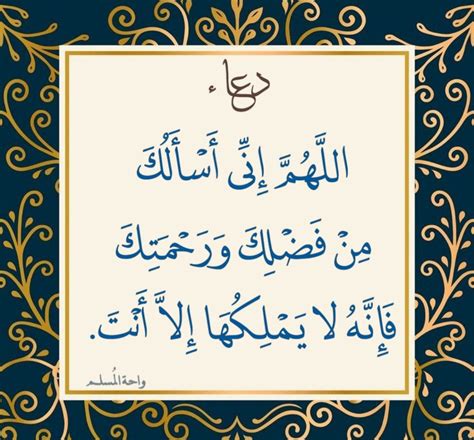 دعاء
اللَّهُمَّ إِنِّى أَسْأَلُكَ
مِنْ فَضْلِكَ وَرَحْمَتِكَ
فَإِنَّهُ لا يَمْلِكُهَا إِلاَّ أَنْتَ.
واحة المُسلم